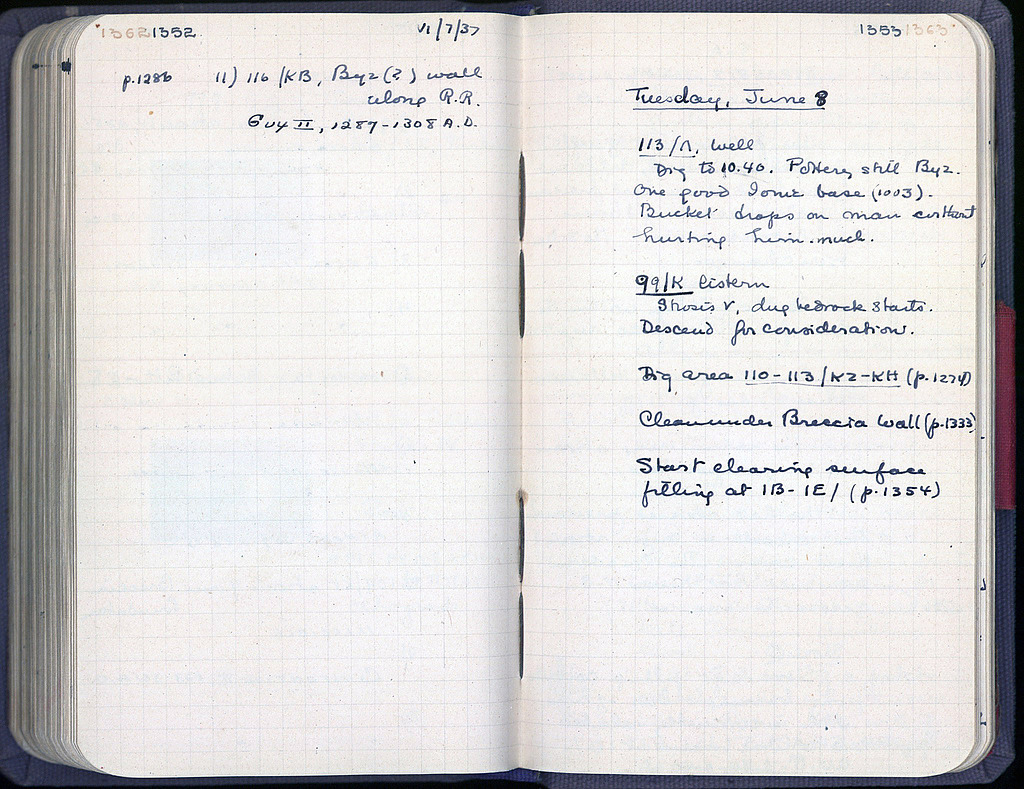 1362 1352
VI/7/37
p.1286 11) 116/KB, Byz(?) wall
along R.R.
Guy II, 1287-1308 A.D.
1353 1363
Tuesday, June 8
113/Λ, well
Dig to 10.40. Pottery still Byz.
One good Ionic base (1003).
Bucket drops on man without
hurting him much.
99/K Cistern
Strosis V, dug bedrock starts.
Descend for consideration.
Dig area 110-113/KZ-KH (p.1274)
Clean under Breccia Wall (p.1333)
Start clearing surface
filling at IB-IE/ (p.1354)